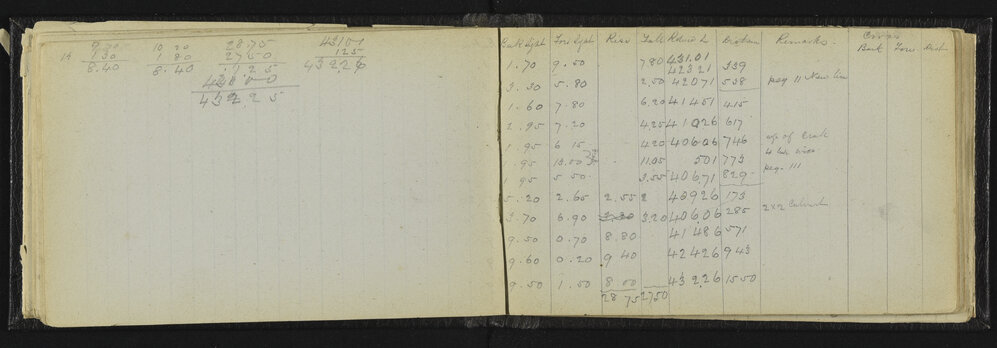 9.70 10 20 28.75 43101
14 1.30 1 80 2750 125
8.40 8.40 1 2 5 43226
43100
43225
Back Sight Fore Sight Rise Fall Red Level Distance Remarks. Cross
Back Fore Dist
43101
1.70 9.50 780 42321 339
3.30 5.80 2.50 42071 538 peg 11 New line
1.60 7.80 6.20 41451 415
2.95 7.20 425 41026 617
1.95 6 15 420 40606 746 of Creek
1.95 13.00 11.05 501 773 4
1 95 5 50 3.55 40671 829 peg 111
5.20 2.65 2.55 40926 173
3.70 6.90 3.20 40606 285 2x2 Culvert
9.50 0.70 8.80 41486 571
9.60 0.20 9 40 42426 943
9.50 1.50 8.00 43226 1550
28 75 2750